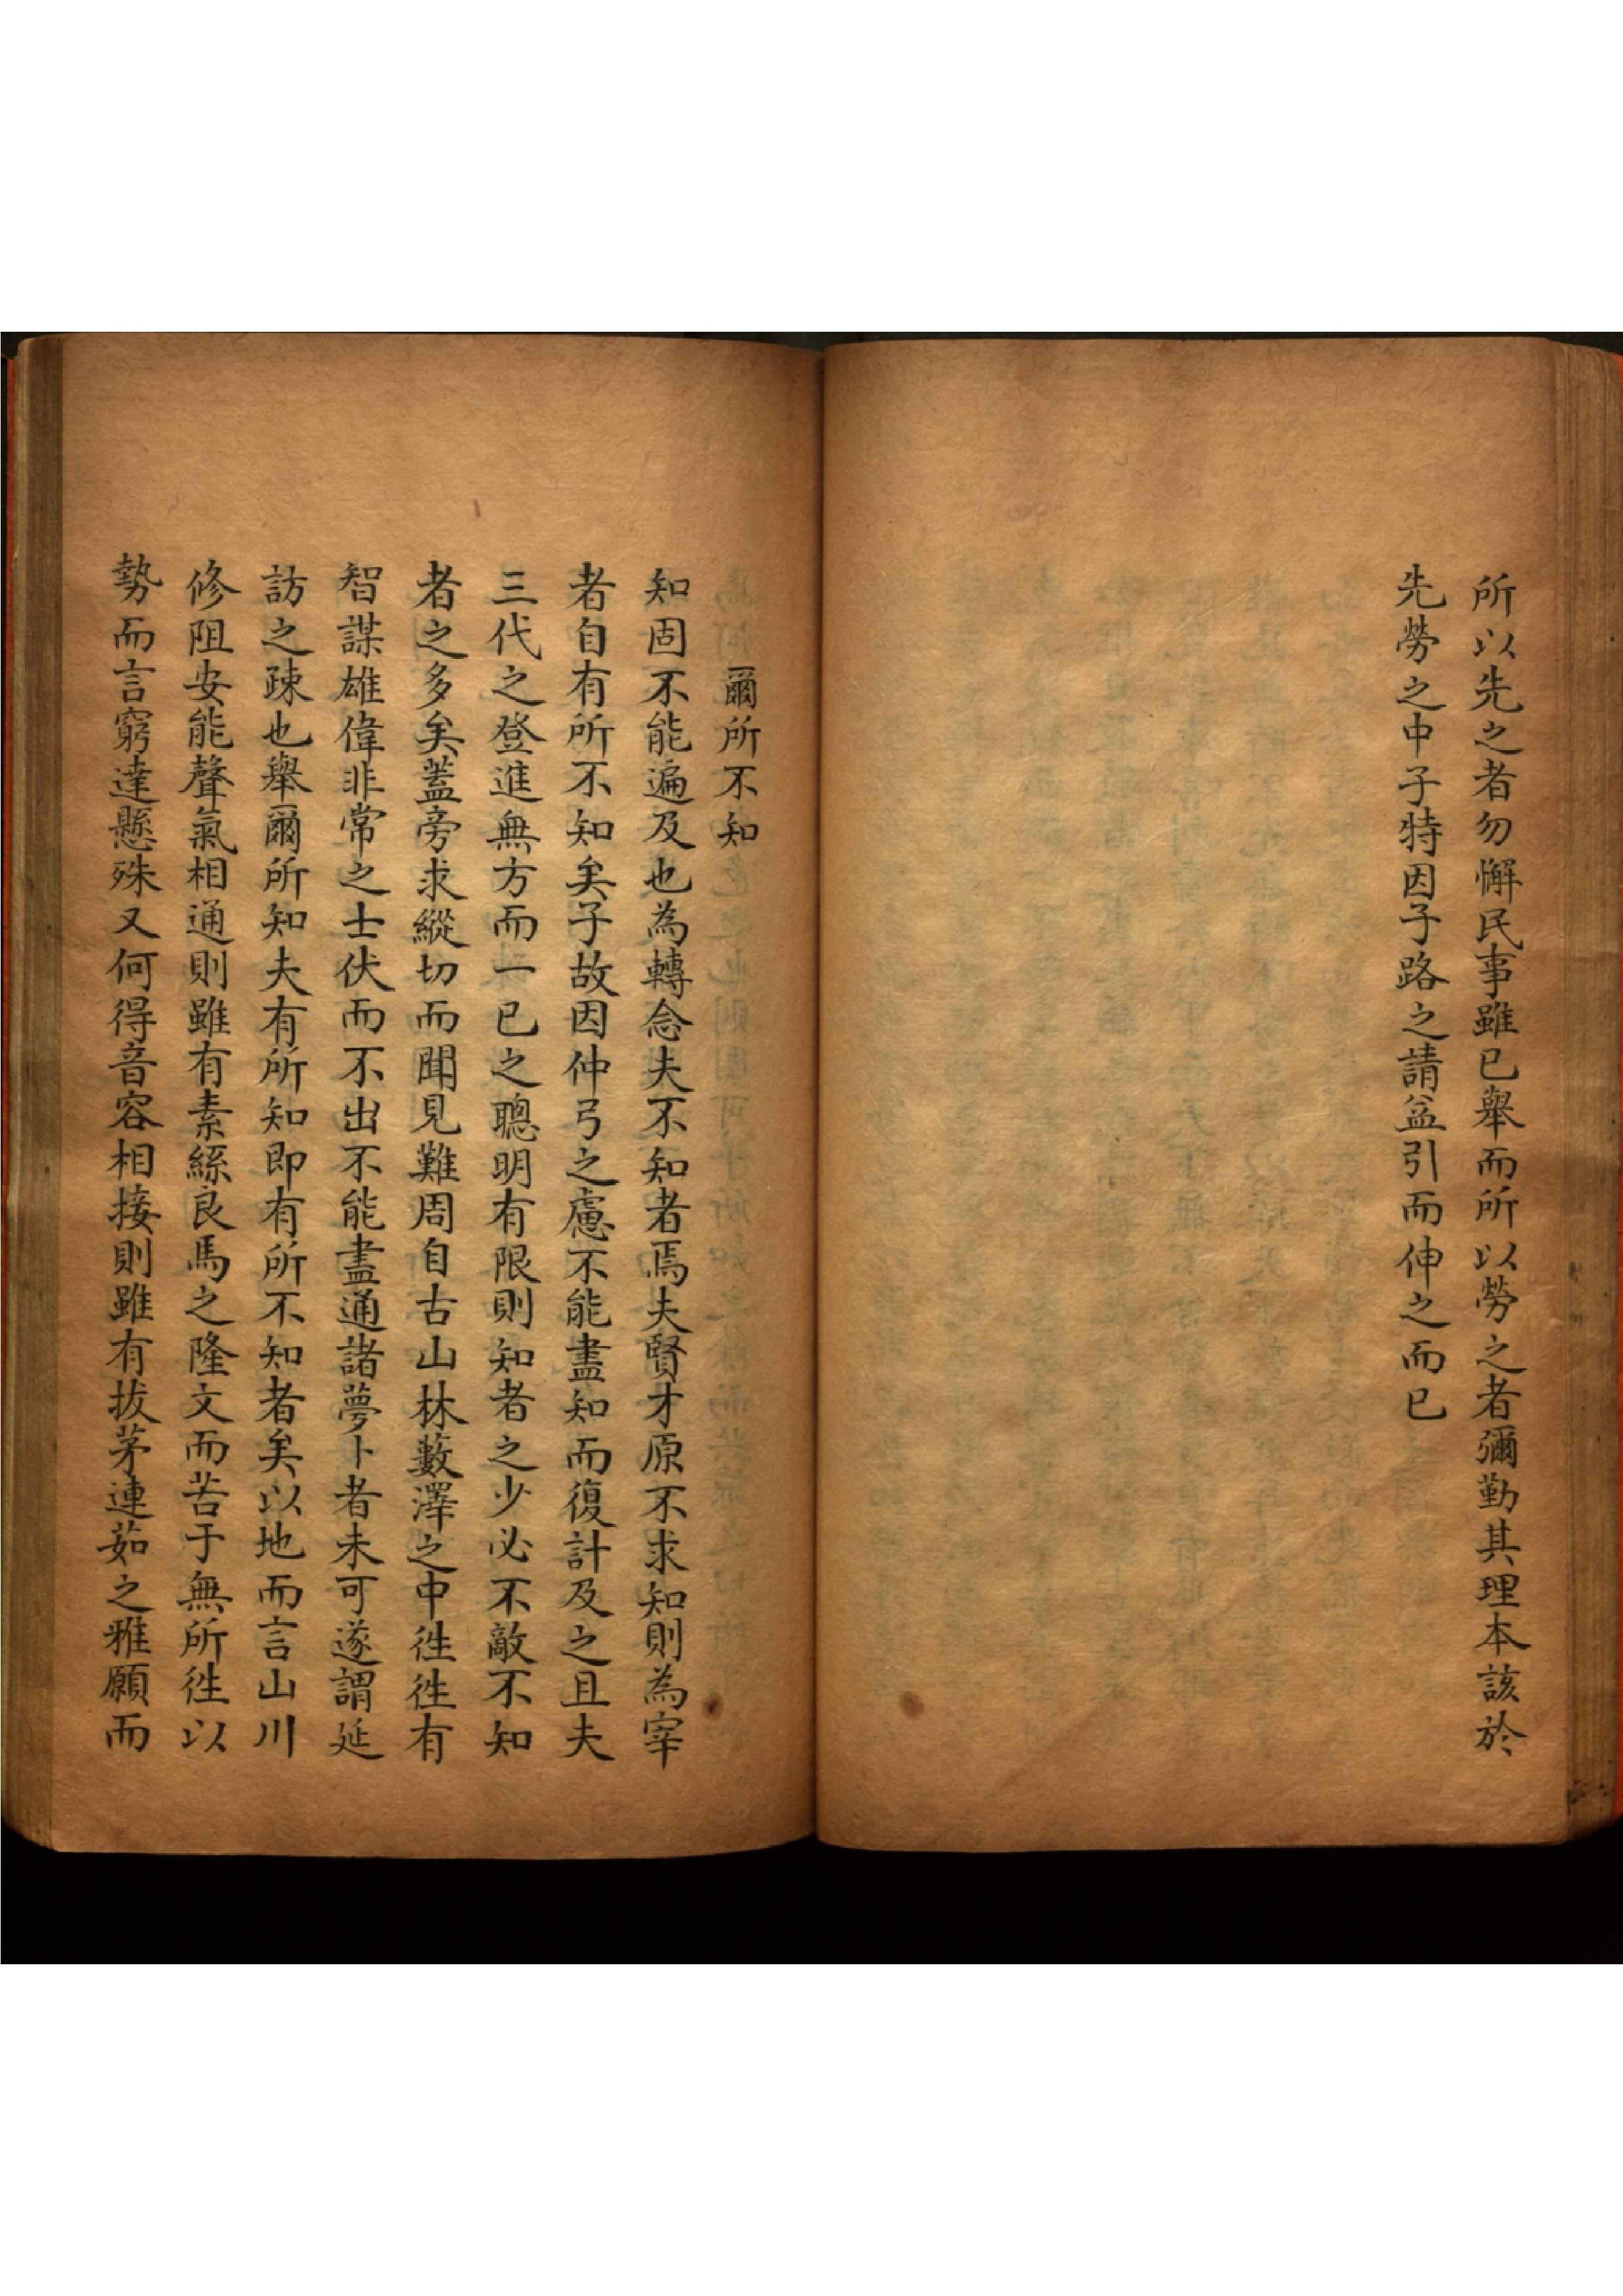 所以先之者勿懈民事雖已舉而所以勞之者彌勤其理本該於
先勞之中子特因子路之請益引而伸之而已
爾所不知
知固不能遍及也為轉念夫不知者焉夫賢才原不求知則為宰
者自有所不知矣子故因仲弓之慮不能盡知而復計及之且夫
三代之登進無方而一已之聰明有限則知者之少必不敵不知
者之多矣蓋旁求縱切而聞見難周自古山林藪澤之中徃徃有
智謀雄偉非常之士伏而不出不能盡通諸夢卜者未可遂謂延
訪之疎也舉爾所知夫有所知即有所不知者矣以地而言山川
修阻安能聲氣相通則雖有素絲良馬之隆文而苦于無所徃以
勢而言窮達懸殊又何得音容相接則雖有拔茅連茹之雅願而